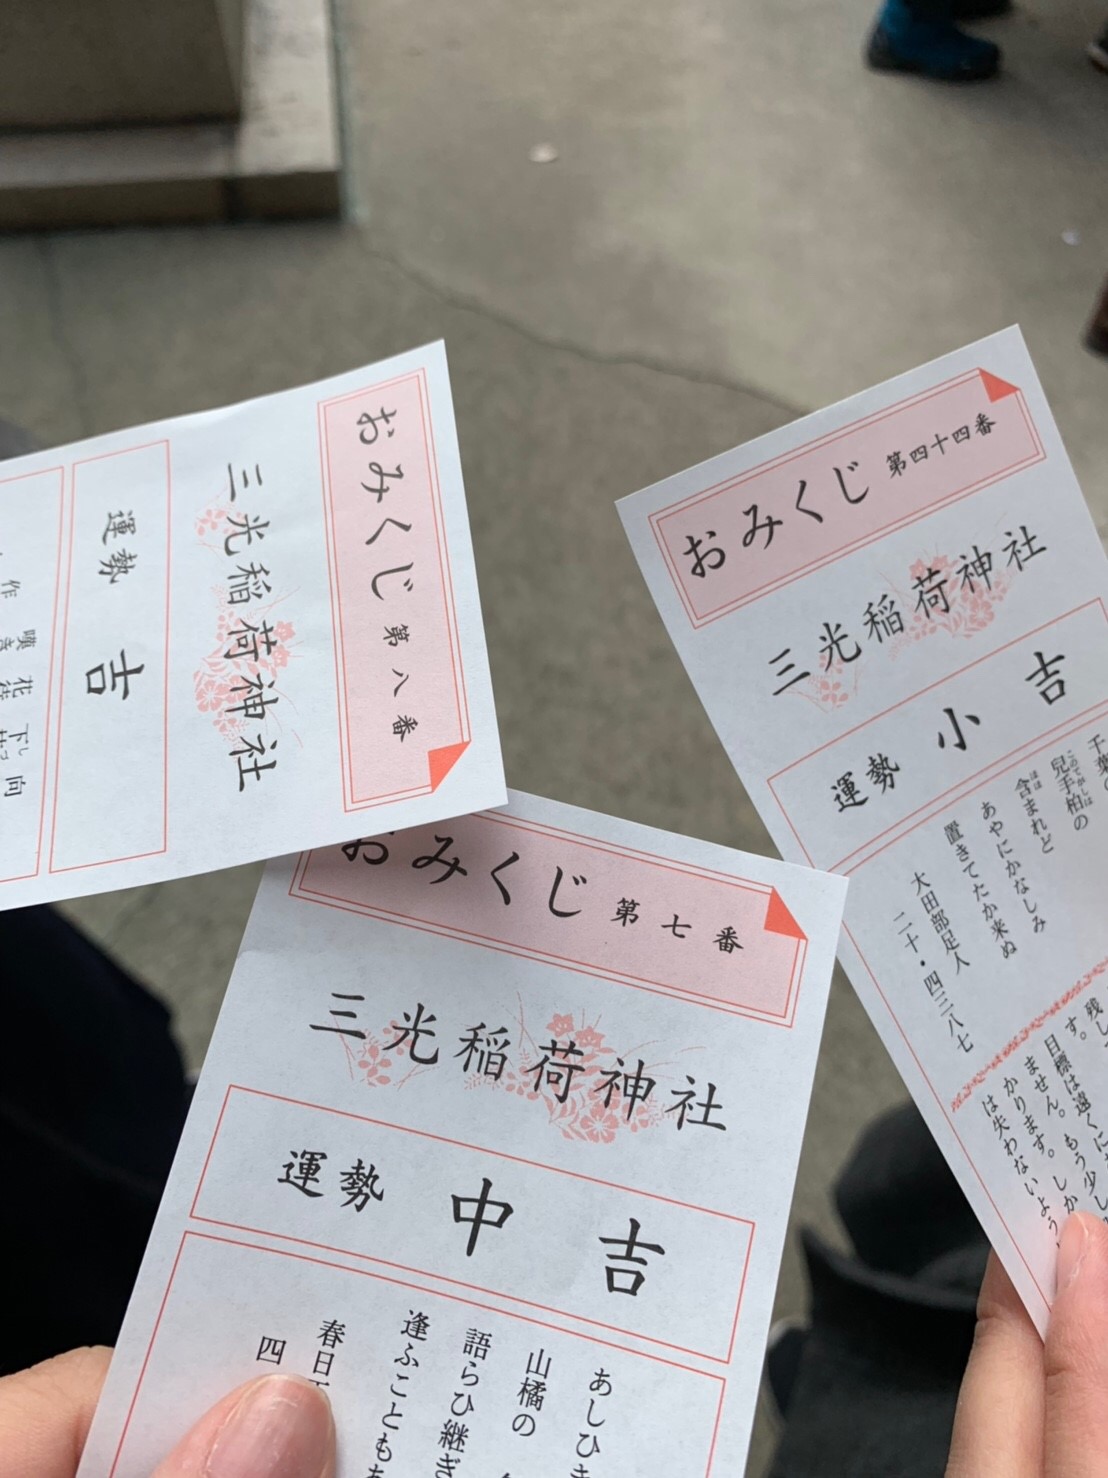 おみくじ 第八番
三光稲荷神社
運勢 吉
おみくじ 第四十四番
三光稲荷神社
運勢 小吉
兒手柏の
このてがしは
含まれど
ほほ
あやにかなしみ
置きてたか来ぬ
大田部足人
二十・四三八七
す。目標は遠くに
ません。もう少し
かります。しか
は失わないよう
おみくじ 第七番
三光稲荷神社
運勢 中吉
あしひき
山橘の
語らひ継ぎ
逢ふことも
春日
四